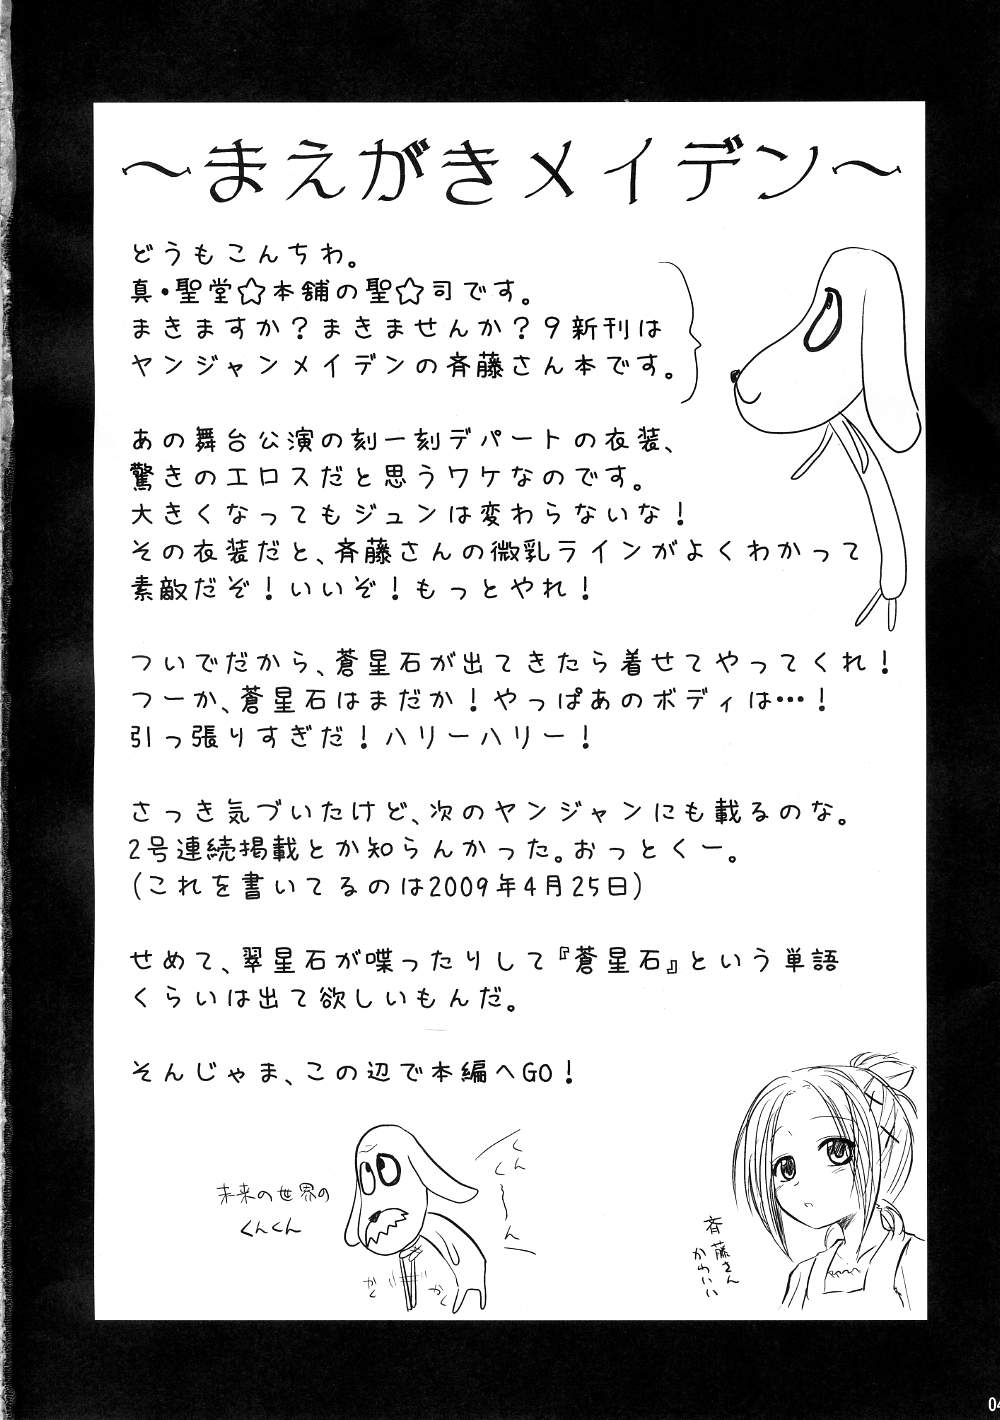 ～まえがきメイデン～
どうもこんちわ。
真・聖堂☆本舗の聖☆司です。
まきますか？まきませんか？９新刊は
ヤンジャンメイデンの斉藤さん本です。
あの舞台公演の刻一刻デパートの衣装、
驚きのエロスだと思うワケなのです。
大きくなってもジュンは変わらないな！
その衣装だと、斉藤さんの微乳ラインがよくわかって
素敵だぞ！いいぞ！もっとやれ！
ついでだから、蒼星石が出てきたら着せてやってくれ！
つーか、蒼星石はまだか！やっぱあのボディは…！
引っ張りすぎだ！ハリーハリー！
さっき気づいたけど、次のヤンジャンにも載るのな。
2号連続掲載とか知らんかった。おっとくー。
(これを書いてるのは2009年4月25日)
せめて、翠星石が喋ったりして『蒼星石』という単語
くらいは出て欲しいもんだ。
そんじゃま、この辺で本編へGO！
未来の世界の
くんくん
くん
く〜ん
かく
かく
斉藤さん
かわいい
04